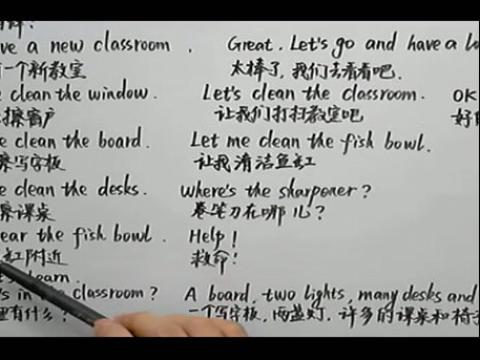 ve a new classroom . Great. Let's go and have a
一个新教室 太棒了,我们去看看吧.
clean the window. Let's clean the classroom. OK
擦窗户 让我们打扫教室吧 好
e clean the board. Let me clean the fish bowl.
擦写字板 让我清洁鱼缸
e clean the desks. Where's the sharpener?
擦课桌 卷笔刀在哪儿?
ear the fish bowl. Help!
缸附近 救命!
learn.
s in classroom? A board, two lights, many desks and
里有什么? 一个写字板,两盏灯,许多的课桌和椅子